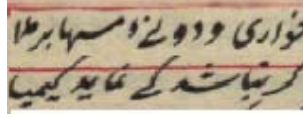 خواری و دونے و مسہا برملا
گر نباشد کے نماید کیمیا